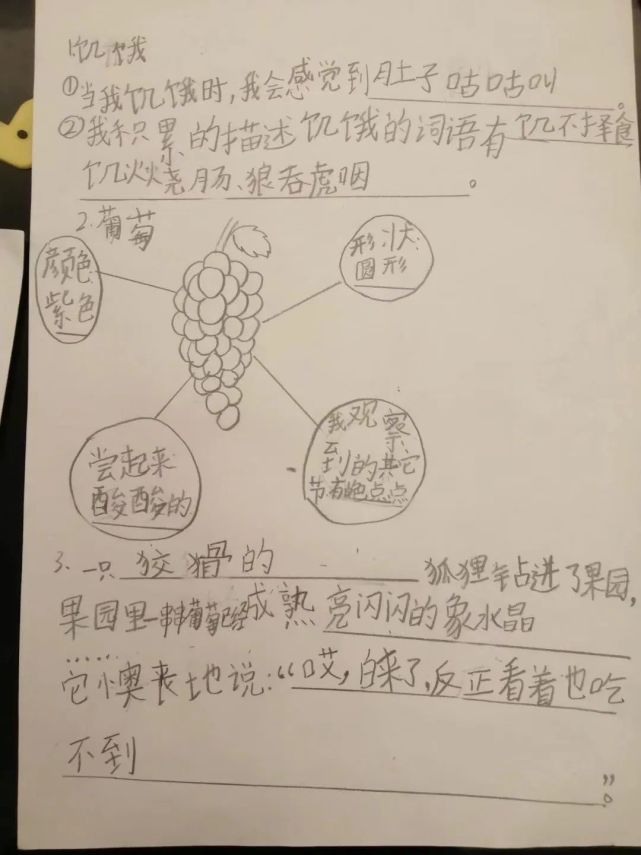 饥饿
①当我饥饿时，我会感觉到肚子咕咕叫。
②我积累的描述饥饿的词语有饥不择食
饥火烧肠、狼吞虎咽。
2.葡萄
颜色
紫色
形状
圆形
尝起来
酸酸的
我观察
到的其它
节有白色点点
3、一只狡猾的狐狸钻进了果园，
果园里一串串葡萄已经成熟亮闪闪的象水晶
……
它懊丧地说：“哎，白来了，反正看着也吃
不到”。